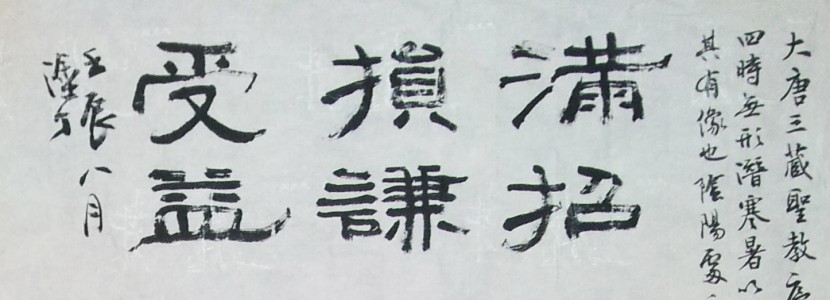 大唐三藏聖教序
四時無形潛寒暑以
其有像也陰陽處
滿招
損謙
受益
壬辰八月